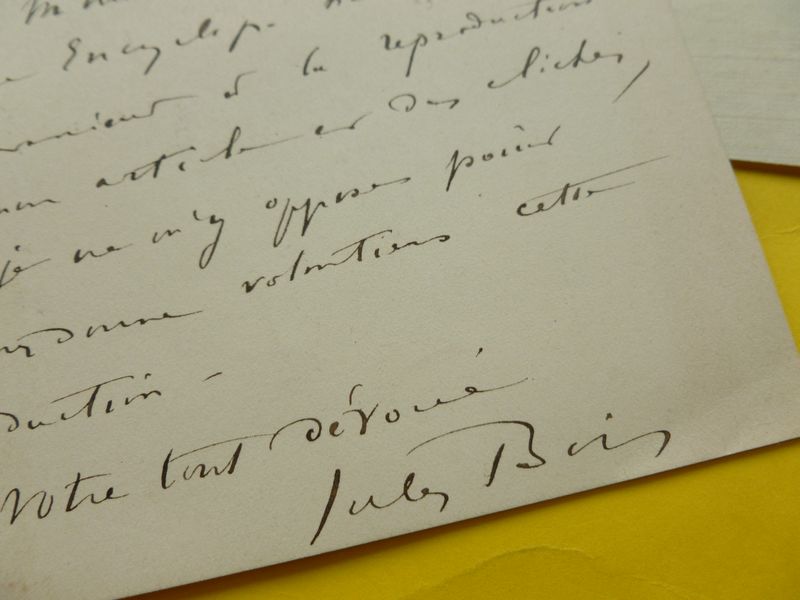 Encyclop.
à la reproduction
mon article et des clichés,
je ne m'y oppose point
donne volontiers cette
duction -
Votre tout dévoué
Jules Bois